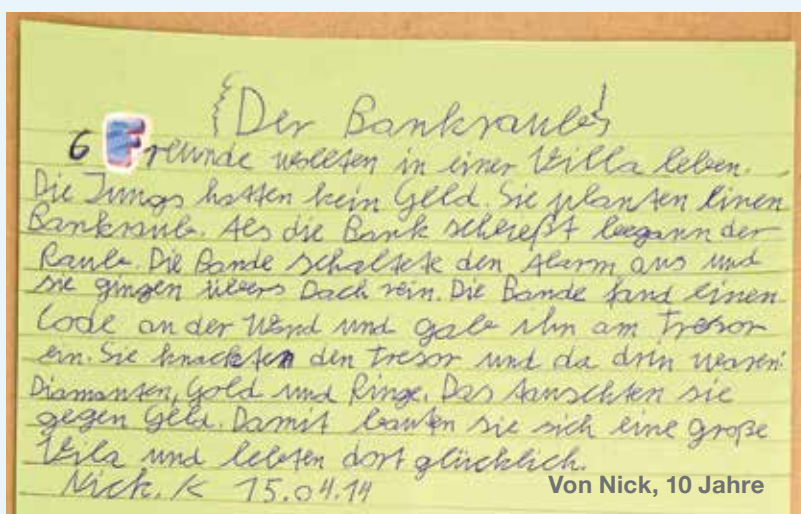 {Der Bankraub}
6 Freunde wollten in einer Villa leben.
Die Jungs hatten kein Geld. Sie planten einen
Bankraub. Als die Bank schließt begann der
Raub. Die Bande schaltete den Alarm aus und
sie gingen übers Dach rein. Die Bande fand einen
Code an der Wand und gab ihn am Tresor
ein. Sie knackten den Tresor und da drin waren:
Diamanten, Gold und Ringe. Das tauschten sie
gegen Geld. Damit bauten sie sich eine große
Vila und lebten dort glücklich.
Nick. K 15.04.14
Von Nick, 10 Jahre